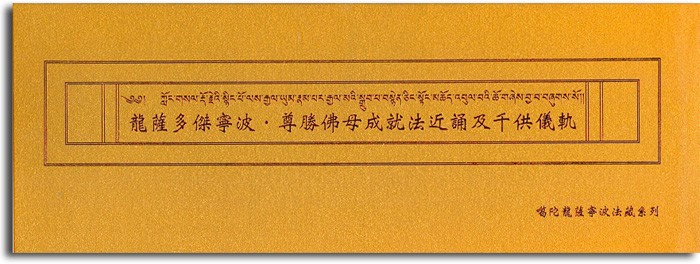 ༄༅། ཀློང་གསལ་རྡོ་རྗེའི་སྙིང་པོ་ལས་རྒྱལ་ཡུམ་རྣམ་པར་རྒྱལ་མའི་སྒྲུབ་པ་བསྙེན་ཅིང་སྟོང་མཆོད་འབུལ་བའི་ཆོ་ག་ཤེས་བྱ་བ་བཞུགས་སོ།།
龍薩多傑寧波·尊勝佛母成就法近誦及千供儀軌
噶陀龍薩寧波法藏系列